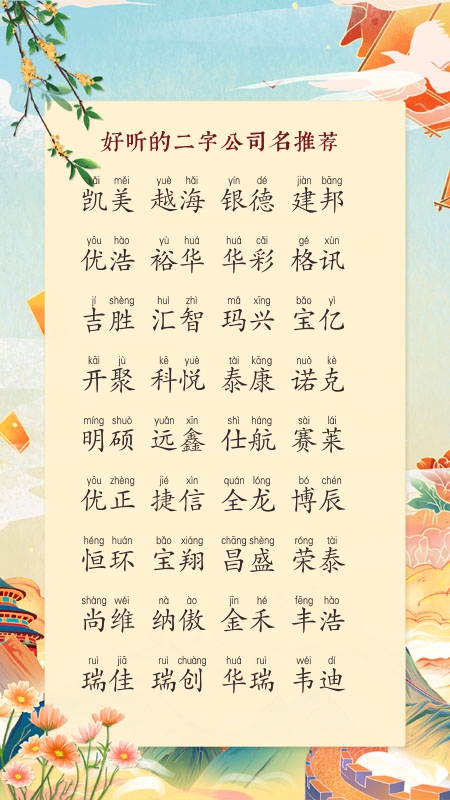 好听的二字公司名推荐
kǎi měi yuè hǎi yín dé jiàn bāng
凯美 越海 银德 建邦
yōu hào yù huá huá cǎi gé xùn
优浩 裕华 华彩 格讯
jí shèng huì zhì mǎ xīng bǎo yì
吉胜 汇智 玛兴 宝亿
kāi jù kē yuè tài kāng nuò kè
开聚 科悦 泰康 诺克
míng shuò yuǎn xīn shì háng sài lái
明硕 远鑫 仕航 赛莱
yōu zhèng jié xìn quán lóng bó chén
优正 捷信 全龙 博辰
héng huán bǎo xiáng chāng shèng róng tài
恒环 宝翔 昌盛 荣泰
shàng wéi nà ào jīn hé fēng hào
尚维 纳傲 金禾 丰浩
ruì jiā ruì chuàng huá ruì wéi dí
瑞佳 瑞创 华瑞 韦迪